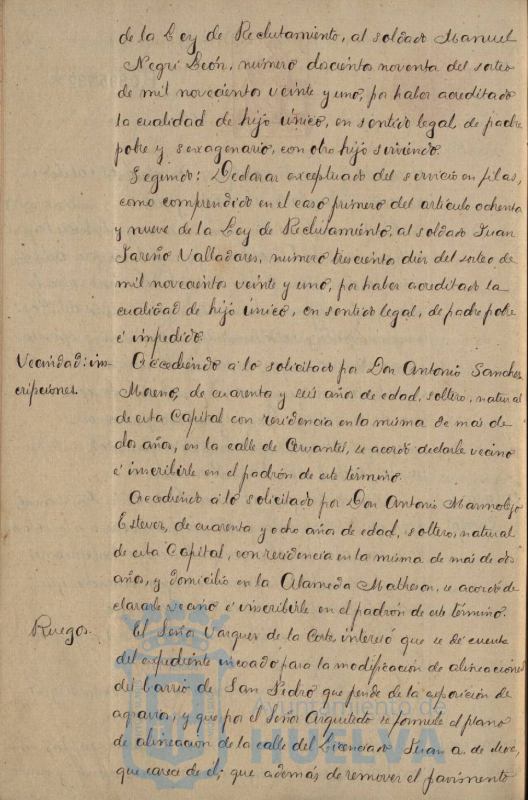 de la Ley de Reclutamiento, al soldado Manuel
Negri León, número doscientos noventa del sorteo
de mil novecientos veinte y uno, por haber acreditado
la cualidad de hijo único, en sentido legal, de padre
pobre y sexagenario, con otro hijo sirviendo.
Segundo: Declarar exceptuado del servicio en filas,
como comprendido en el caso primero del artículo ochenta
y nueve de la Ley de Reclutamiento, al soldado Juan
Jareño Valladares, número trescientos diez del sorteo de
mil novecientos veinte y uno, por haber acreditado la
cualidad de hijo único, en sentido legal, de padre pobre
é impedido.
Vecindad: ins-
cripciones.
Accediendo á lo solicitado por Don Antonio Sanchez
Moreno, de cuarenta y seis años de edad, soltero, natural
de esta Capital con residencia en la misma de más de
dos años, en la calle de Cervantes, se acordó declarle vecino
é inscribirle en el padrón de este término.
Accediendo á lo solicitado por Don Antonio Marmolejo
Estevez, de cuarenta y ocho años de edad, soltero, natural
de esta Capital, con residencia en la misma de más de dos
años, y domicilio en la Alameda Matheson, se acordó de-
clararle vecino é inscribirle en el padrón de este término.
Ruegos.
El Señor Vazquez de la Corte interesó que se dé cuenta
del expediente incoado para la modificación de alineaciones
del barrio de San Pedro que pende de la exposición de
agravios, y que por el Señor Arquitecto se formule el plano
de alineación de la calle del Licenciado Juan A. de
que carece de él; que además de remover el pavimento
Ayuntamiento de
HUELVA